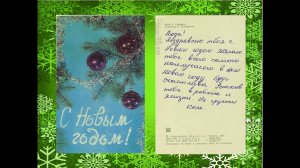 С Новым
годом!
Поздравляю тебя с
Новым годом желаю
тебе всего самого
наилучшего в этом
Новом году. Будь
счастлива. Успехов
тебе в работе и
жизни. Не грусти